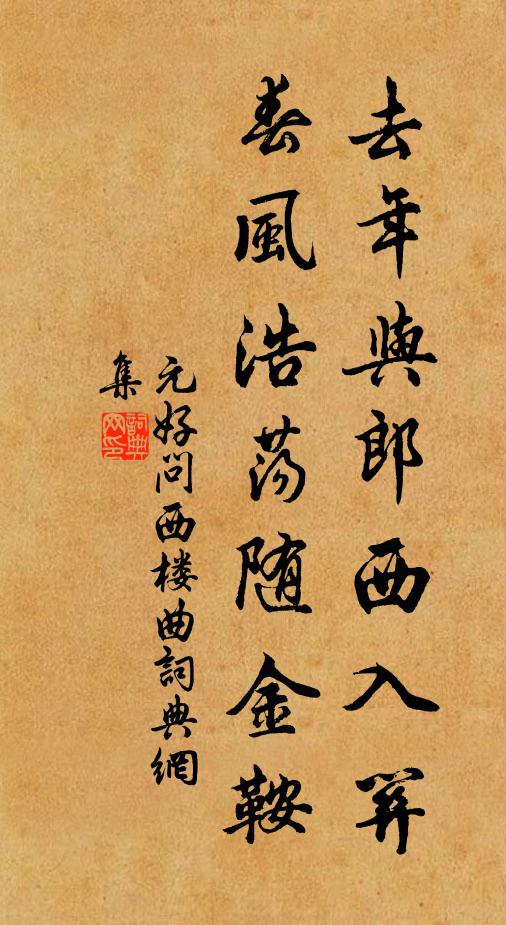 去年與郎西入關
春風浩蕩随金鞍
元好問西楼曲詞典網
集
詞典網印